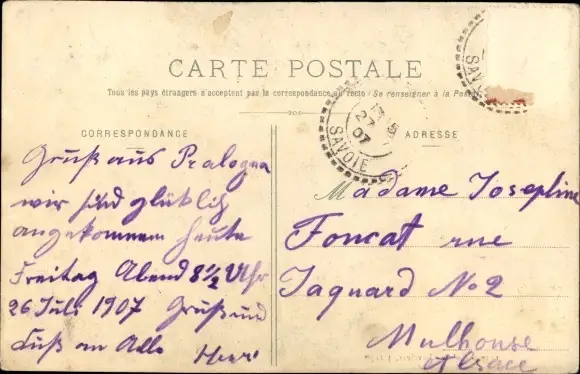 CARTE POSTALE
Tous les pays étrangers n'acceptent pas la correspondance au recto (Se renseigner à la Poste
CORRESPONDANCE
ADRESSE
Gruß aus Pralogna
wir sind glüklich
angekommen heute
Freitag Abend 8½ Uhr
26 Juli 1907 Gruß und
Kuß an Alle
Madame Josephine
Foncat rue
Jaquard No 2
Mulhouse
Alsace
27
07
SAVOIE
SAVOIE